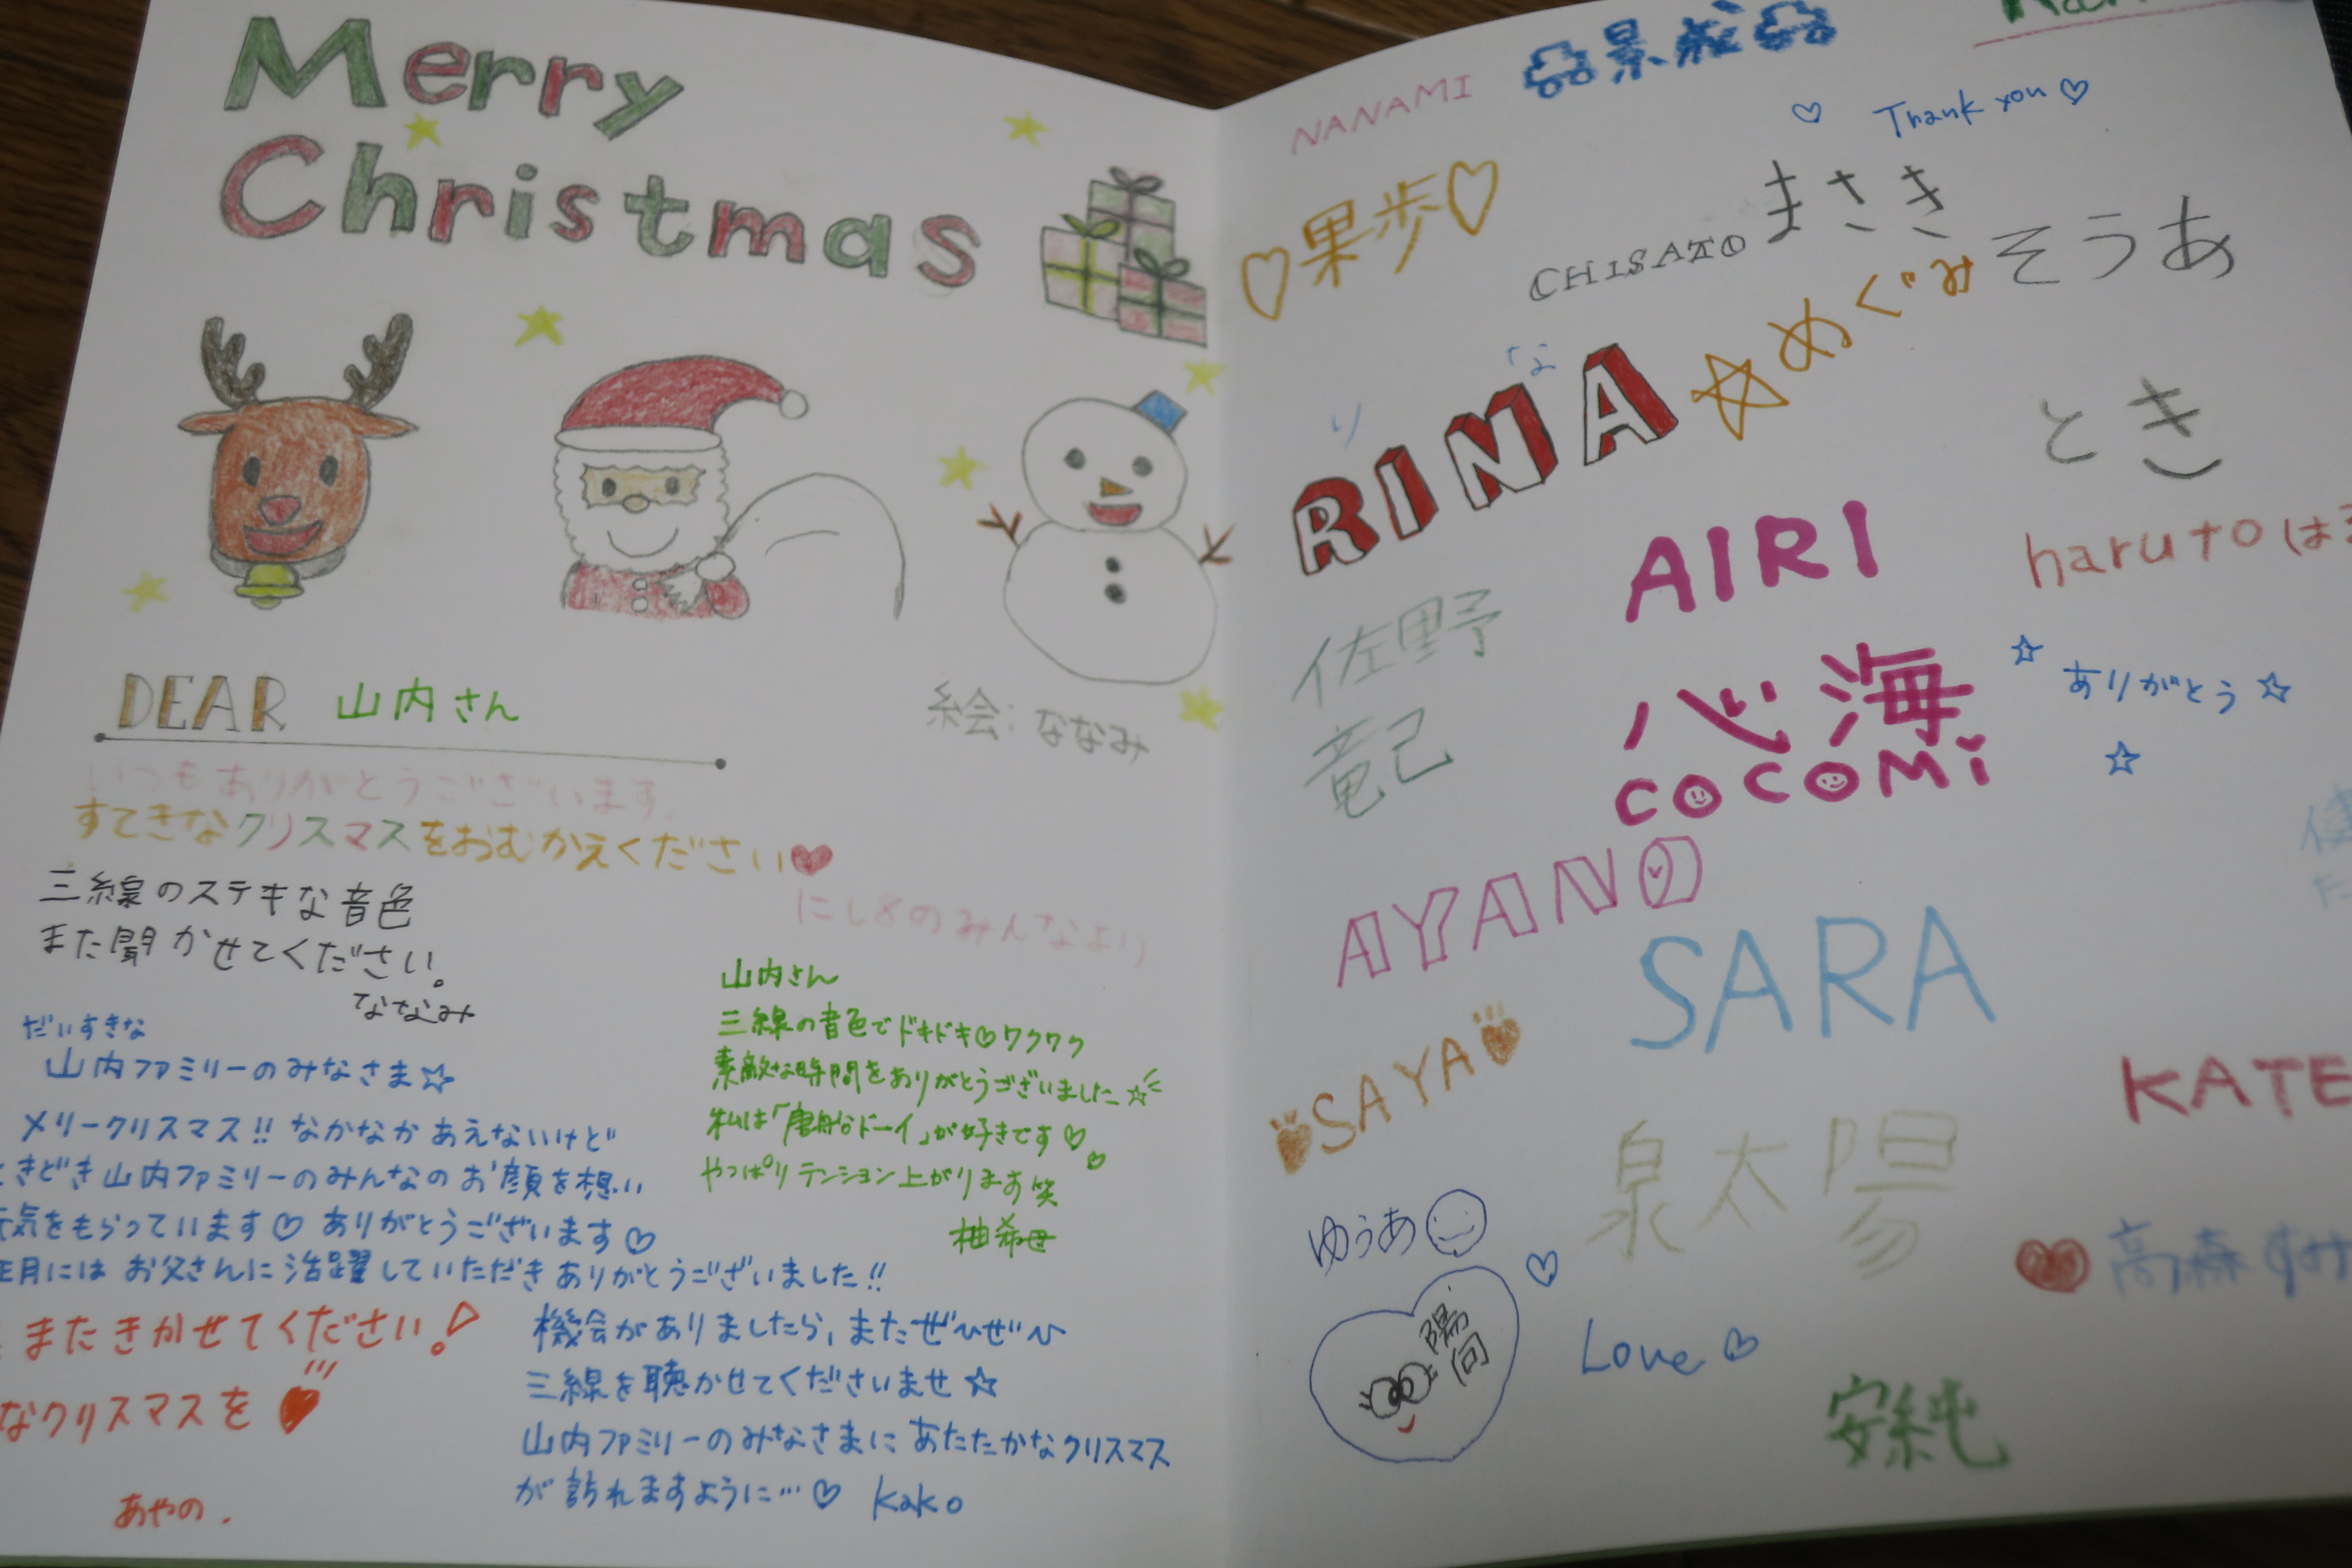 Merry
Christmas
DEAR 山内さん
絵会:ななみ
いつもありがとうございます。
すてきなクリスマスをおむかえください
にし8のみんなより
三線のステキな音色
また聞かせてください。
ななみ
だいすきな
山内ファミリーのみなさま☆
メリークリスマス!! なかなかあえないけど
ときどき山内ファミリーのみんなのお顔を想い
元気をもらっています♡ ありがとうございます♡
正月には お父さんに活躍していただきありがとうございました!!
機会がありましたら、またぜひぜひ
三線を聴かせてくださいませ☆
山内ファミリーのみなさまに あたたかなクリスマス
が訪れますように…♡ kako
山内さん
三線の音色でドキドキ♡ワクワク
素敵な時間をありがとうございました☆
私は「唐船ドーイ」が好きです♡
やっぱりテンション上がります笑
柚希世
またきかせてください!
なクリスマスを
あやの.
NANAMI
Thank you♡
♡果歩♡
CHISATO
まさき
そうあ
☆めぐみ
り な
RINA
とき
AIRI
haruto は
佐野
竜己
心海
COCOMi
☆ありがとう☆
AYANO
SARA
SAYA
KATE
泉太陽
ゆうあ
高森
陽向
Love♡
安純